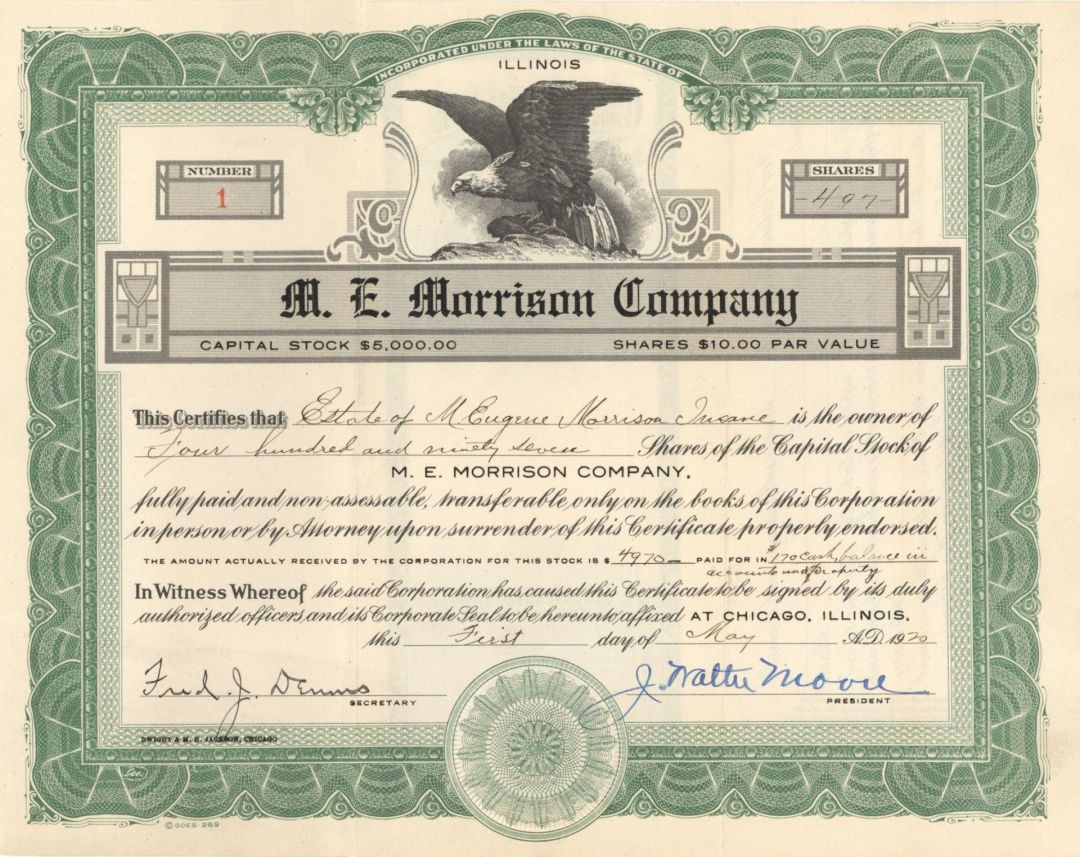 INCORPORATED UNDER THE LAWS OF THE STATE OF
ILLINOIS
NUMBER
1
SHARES
-497-
M. E. Morrison Company
CAPITAL STOCK $5,000.00 SHARES $10.00 PAR VALUE
This Certifies that Estate of M. Eugene Morrison Insane is the owner of
Four hundred and ninety seven Shares of the Capital Stock of
M. E. MORRISON COMPANY,
fully paid and non-assessable, transferable only on the books of this Corporation
in person or by Attorney upon surrender of this Certificate properly endorsed.
THE AMOUNT ACTUALLY RECEIVED BY THE CORPORATION FOR THIS STOCK IS $ 4970— PAID FOR IN $170 Cash, balance in
accounts and property
In Witness Whereof the said Corporation has caused this Certificate to be signed by its duly
authorized officers and its Corporate Seal to be hereunto affixed AT CHICAGO, ILLINOIS,
this First day of May A.D. 1920
Fred J. Dennis
SECRETARY
J. Walter Moore
PRESIDENT
DWIGHT & M. H. JACKSON, CHICAGO
© GOES 269